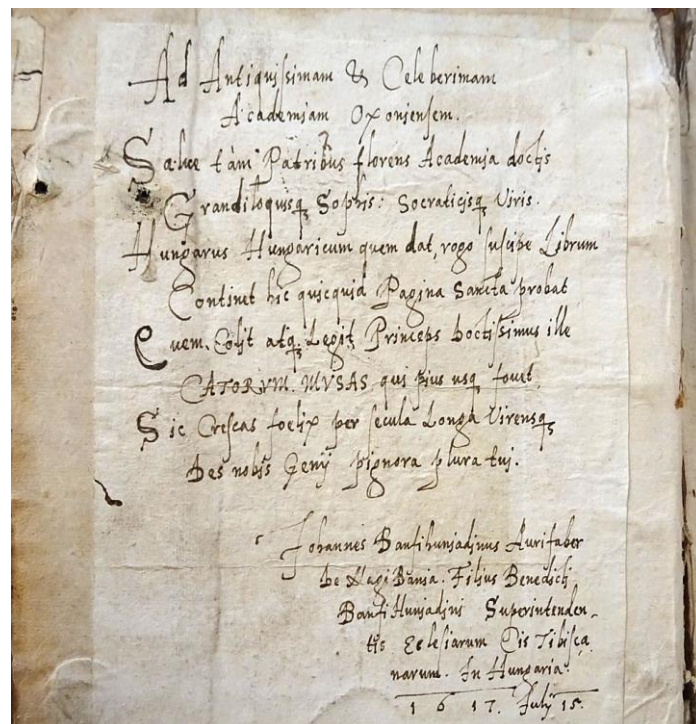 Ad Antiquissimam & Celeberimam
Academiam Oxoniensem.
Salve tàm Patribus florens Academia doctis
Grandiloquisq; Sophis: Socraticisq; Viris.
Hungarus Hungaricum quem dat, rogo suscipe Librum
Continet hic quicquid Pagina Sancta probat
Quem Colit atq; Legit Princeps doctissimus ille
CATORVM. MVSAS qui pius usq; fovet.
Sic Crescas foelix per secula Longa Virensq;
Des nobis Genij pignora plura tui.
Johannes Banfihuniadinus Aurifaber
De Nagi Bania. Filius Benedicti
Banfi Huniadini Superintenden-
tis Eclesiarum Cis Tibisca
narum. In Hungaria.
1617. July 15.